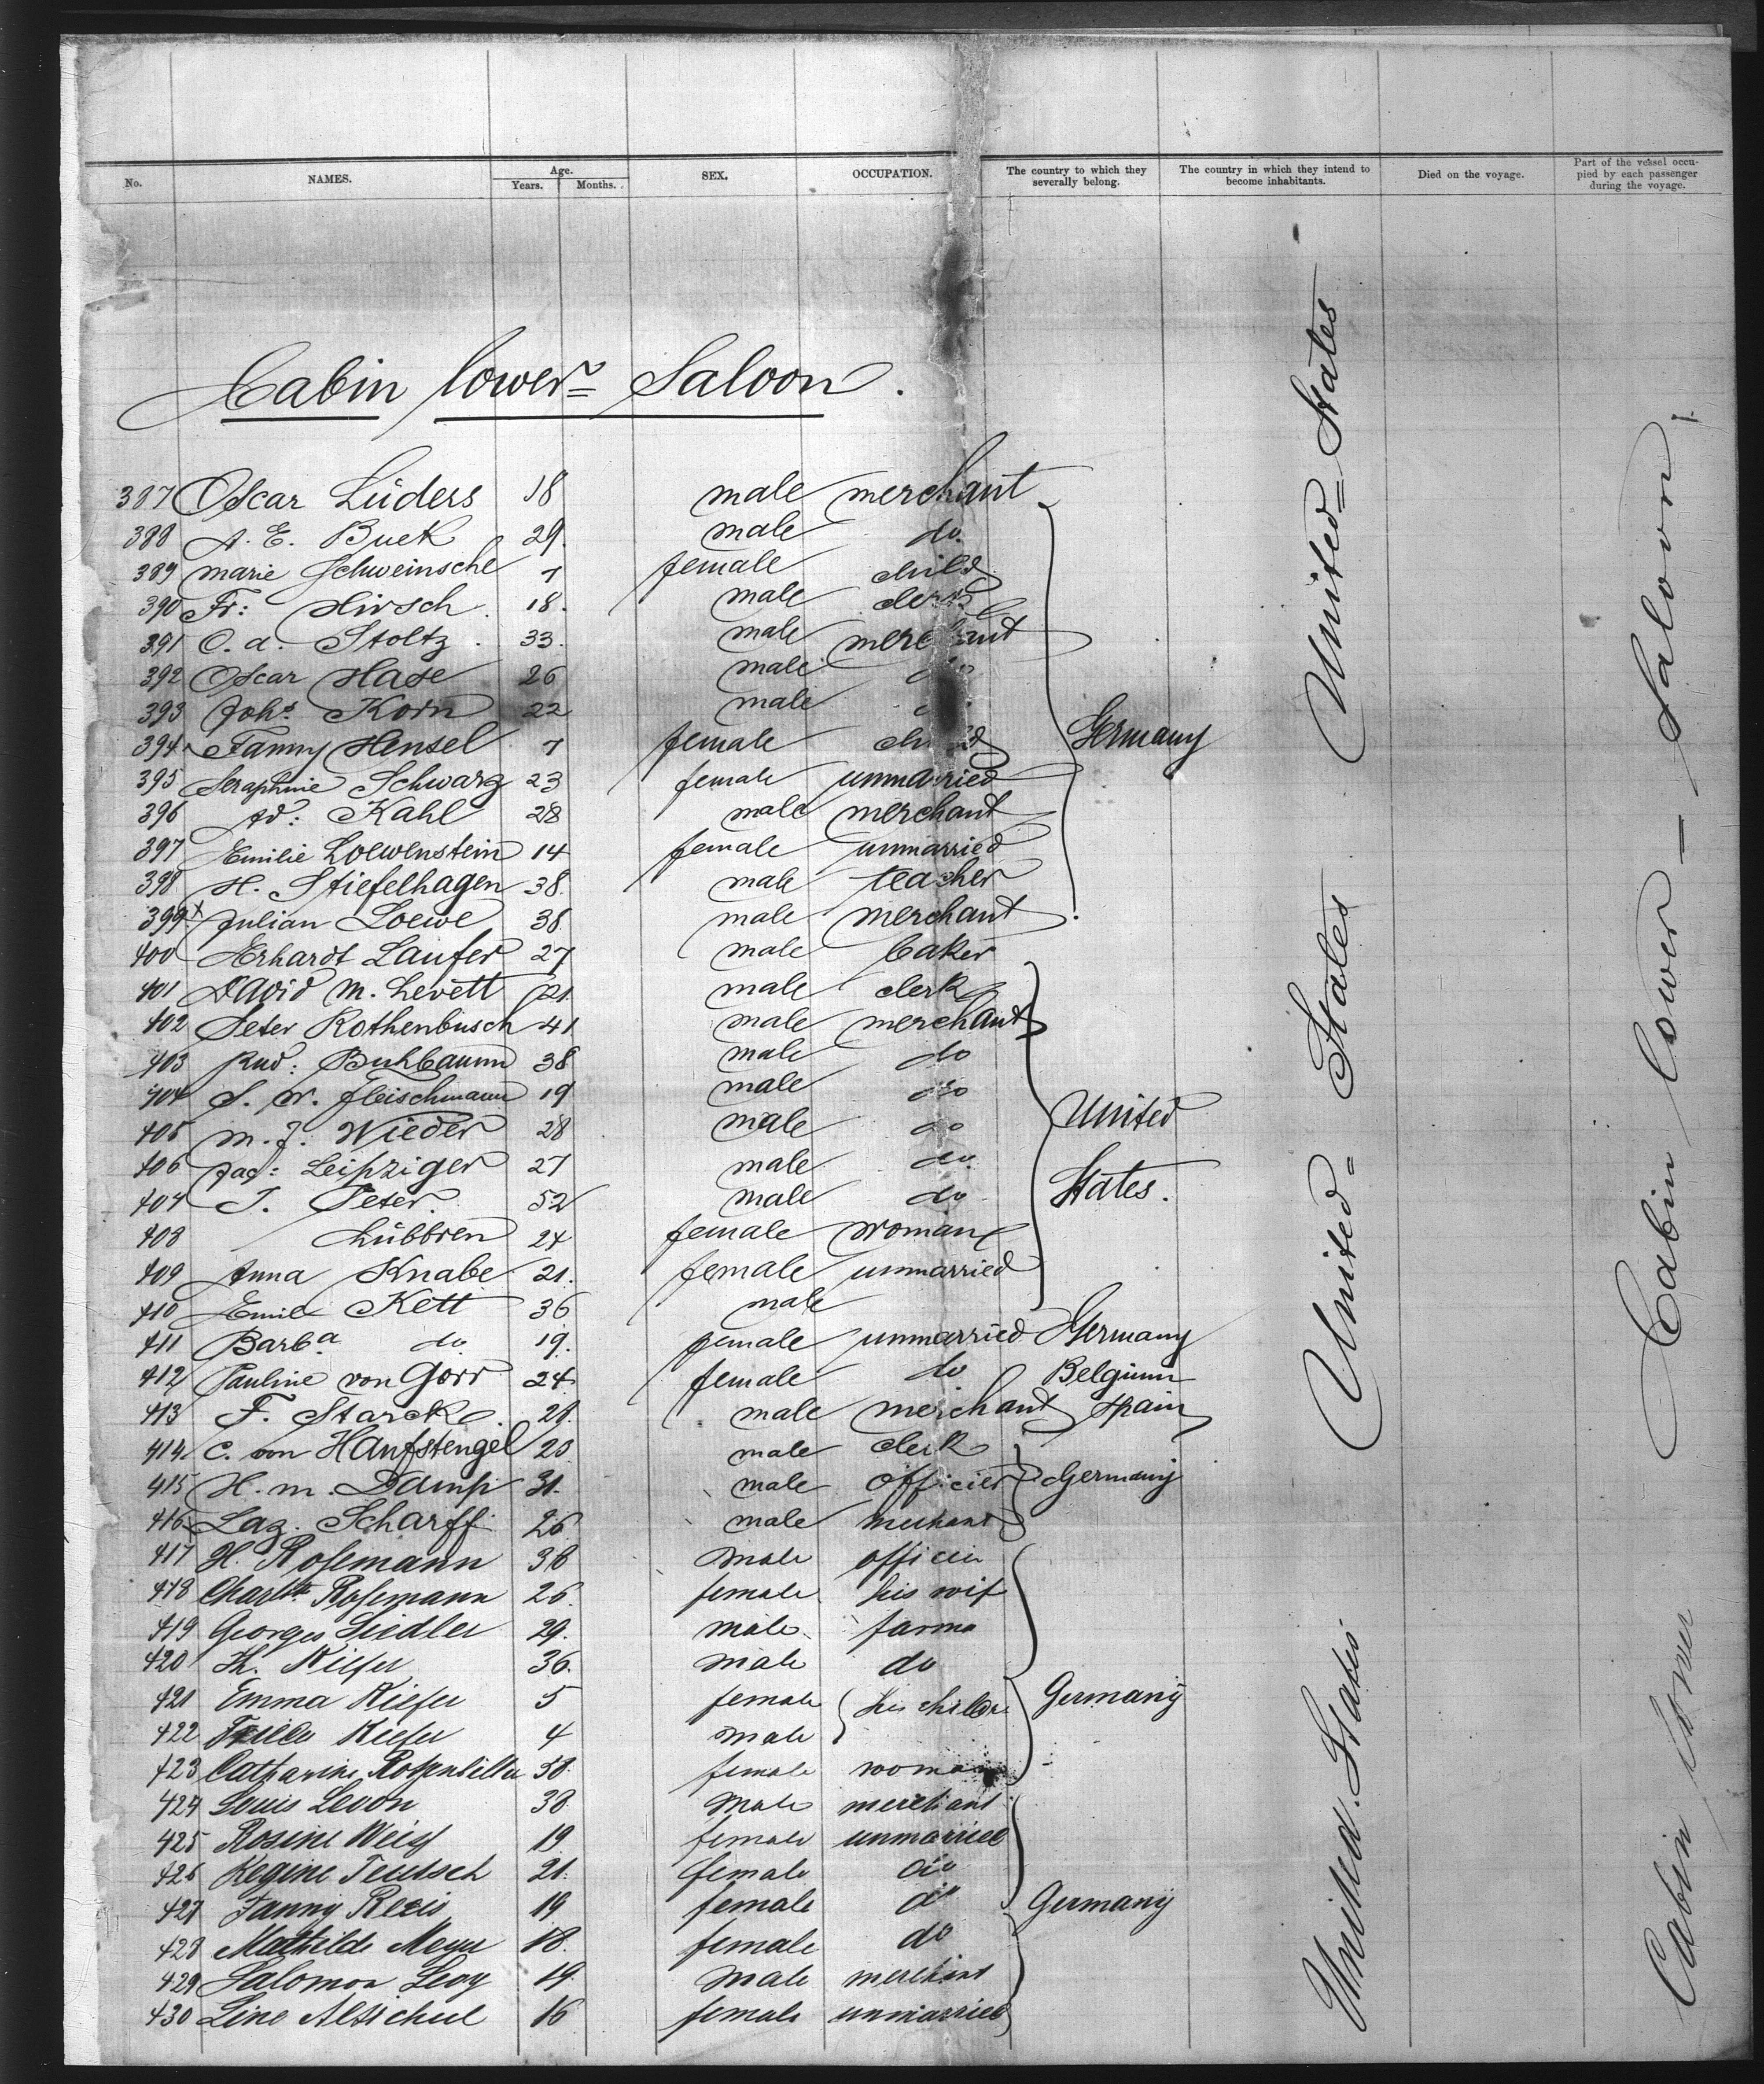 No. NAMES. Age. Years. Months. SEX. OCCUPATION. The country to which they severally belong. The country in which they intend to become inhabitants. Died on the voyage. Part of the vessel occupied by each passenger during the voyage.
Cabin lower Saloon.
387 Oscar Lüders 18 male merchant
388 A. E. Buek 29. male do.
389 Marie Schweinsche 7 female child
390 Fr: Hirsch 18. male clerk
391 O. A. Stoltz 33. male merchant
392 Oscar Hase 26 male do
393 Johs. Korn 22 male
394 Fanny Hensel 7 female child
Germany
395 Seraphine Schwarz 23 female unmarried
396 Ad: Kahl 28 male merchant
397 Emilie Loewenstein 14 female unmarried
398 H. Stiefelhagen 38. male teacher
399 x Julian Loewe 38 male merchant
400 Erhardt Laufer 27 male baker
401 David M. Levett 21 male clerk
402 Peter Rothenbusch 41 male merchant
403 Rud: Buhbaum 38 male do
404 S. W. Fleischmann 19 male do
405 M. J. Wieder 28 male do United
406 Jac: Leipziger 27 male do.
407 J. Peter. 52 male do States.
408 Lübbren 24 female woman
409 Anna Knabe 21. female unmarried
410 Emil Kett 36 male
411 Barba. do 19. female unmarried Germany
412 Pauline von Gorr 24 female do Belgium
413 F. Starck 21. male merchant Spain
414 C. von Hanfstengel 20 male clerk
415 H. M. Damp 31. male officier Germany
416 Laz. Scharff 26 male merchant
417 H. Rosemann 38 male officier
418 Charltte Rosemann 26. female his wif
419 Georges Siedler 29. male farmer
420 Th. Kiefer 36. male do
421 Emma Kiefer 5 female his childre Germany
422 Kiefer 4 male
423 Catharine 38 female woman
424 Louis Levon 38 male merchant
425 Rosine Weis 19 female unmarried
426 Regine Teutsch 21. female do
427 Fanny Recis 19 female do Germany
428 Mathilde Meyer 18. female do
429 Salomon Levy 19. male merchant
430 Line Altschul 16 female unmarried
United States
United States
United States
Cabin lower Saloon
Cabin lower